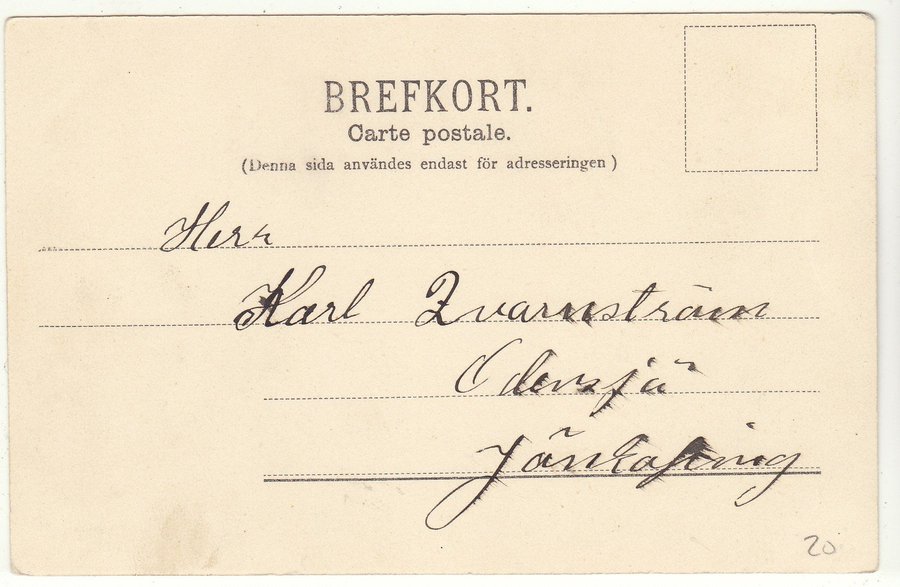 BREFKORT.
Carte postale.
(Denna sida användes endast för adresseringen)
Herr
Karl Qvarnström
Jönköping
20